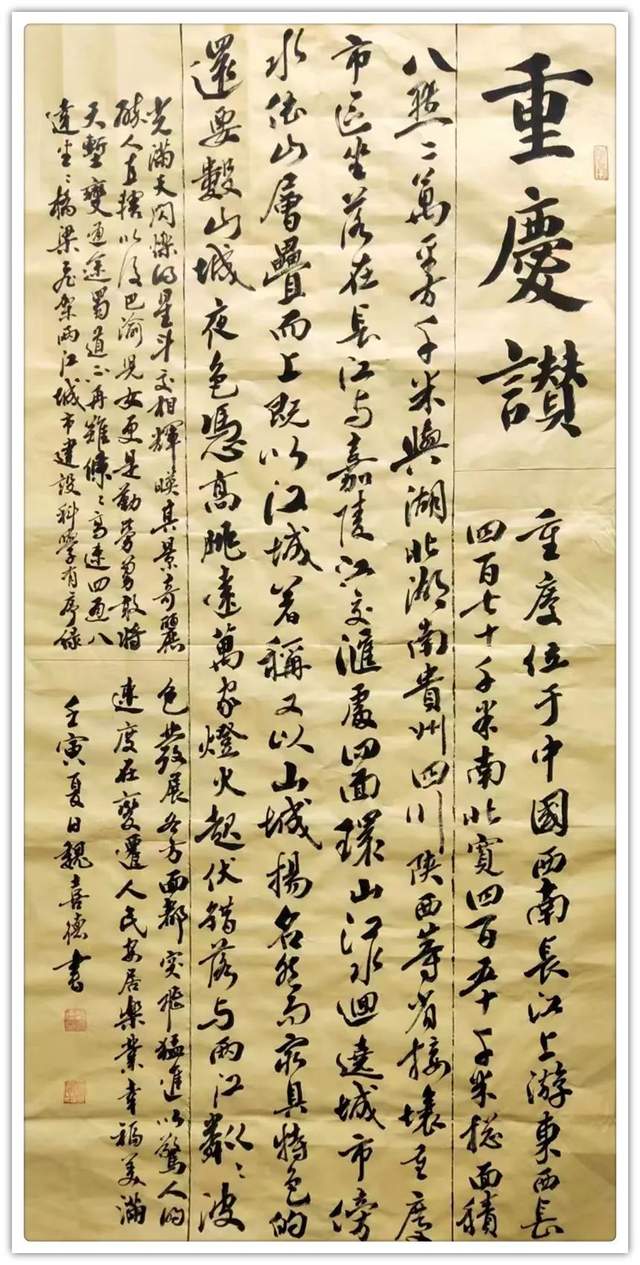 重慶讚
重慶位于中國西南長江上游東西長
四百七十千米南北寬四百五十千米總面積
八點二萬平方千米與湖北湖南貴州四川陝西等省接壤重慶
市區坐落在長江与嘉陵江交滙處四面環山江水迴遶城市傍
水依山層疊而上既以江城著稱又以山城揚名然而最具特色的
還要數山城夜色憑高眺遠萬家燈火起伏錯落与兩江粼々波
光滿天閃爍的星斗交相輝暎其景奇麗
醉人直轄以後巴渝児女更是勤勞勇敢將
天塹變通途蜀道不再難條々高速四通八
達坐々橋梁飛架兩江城市建設科學有序綠
色發展各方面都突飛猛進以驚人的
速度在變遷人民安居樂業幸福美滿
壬寅夏日魏喜德書